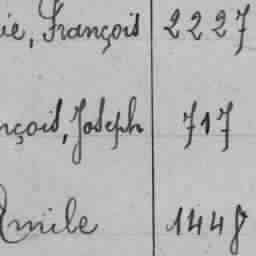 ie, François 2227
nçois, Joseph 717
Emile 1448